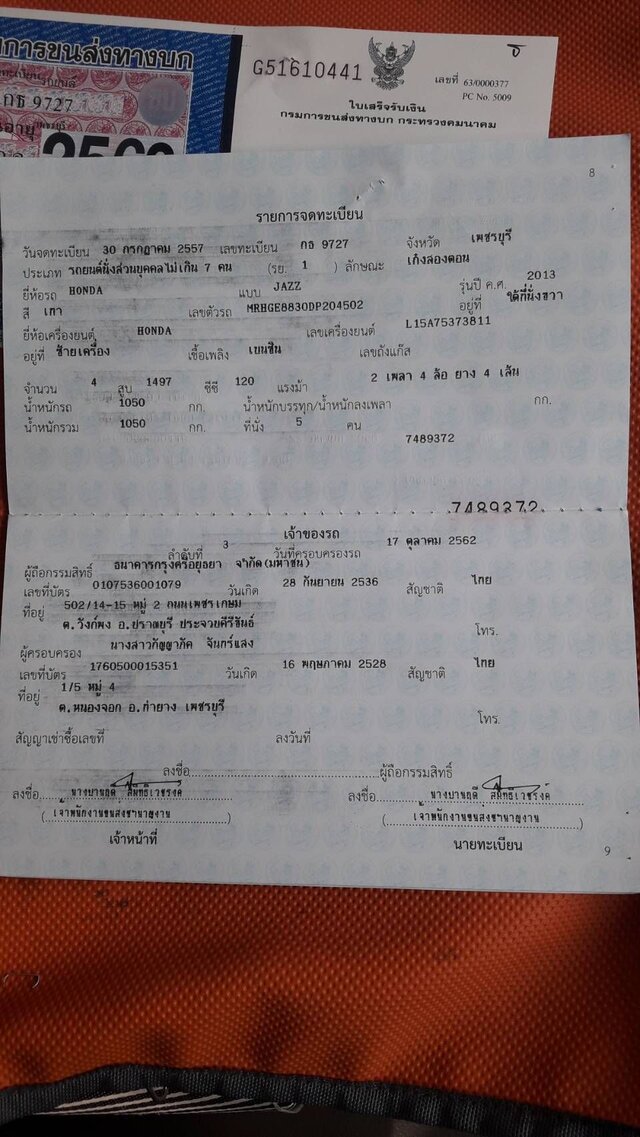 การขนส่งทางบก
กธ 9727
G51610441
เลขที่ 63/0000377
PC No. 5009
ใบเสร็จรับเงิน
กรมการขนส่งทางบก กระทรวงคมนาคม
8
รายการจดทะเบียน
วันจดทะเบียน 30 กรกฎาคม 2557 เลขทะเบียน กธ 9727 จังหวัด เพชรบุรี
ประเภท รถยนต์นั่งส่วนบุคคลไม่เกิน 7 คน (รย. 1 ) ลักษณะ เก๋งสองตอน
ยี่ห้อรถ HONDA แบบ JAZZ รุ่นปี ค.ศ. 2013
สี เทา เลขตัวรถ MRHGE8830DP204502 อยู่ที่ ใต้ที่นั่งขวา
ยี่ห้อเครื่องยนต์ HONDA เลขเครื่องยนต์ L15A75373811
อยู่ที่ ซ้ายเครื่อง เชื้อเพลิง เบนซิน เลขถังแก๊ส
จำนวน 4 สูบ 1497 ซีซี 120 แรงม้า 2 เพลา 4 ล้อ ยาง 4 เส้น
น้ำหนักรถ 1050 กก. น้ำหนักบรรทุก/น้ำหนักลงเพลา กก.
น้ำหนักรวม 1050 กก. ที่นั่ง 5 คน
7489372
7489372
เจ้าของรถ
ลำดับที่ 3 วันที่ครอบครองรถ 17 ตุลาคม 2562
ผู้ถือกรรมสิทธิ์ ธนาคารกรุงศรีอยุธยา จำกัด(มหาชน)
เลขที่บัตร 0107536001079 วันเกิด 28 กันยายน 2536 สัญชาติ ไทย
ที่อยู่ 502/14-15 หมู่ 2 ถนนเพชรเกษม
ต.วังก์พง อ.ปราณบุรี ประจวบคีรีขันธ์ โทร.
ผู้ครอบครอง นางสาวกัญญาภัค จันทร์แสง
เลขที่บัตร 1760500015351 วันเกิด 16 พฤษภาคม 2528 สัญชาติ ไทย
ที่อยู่ 1/5 หมู่ 4
ต.หนองจอก อ.ท่ายาง เพชรบุรี โทร.
สัญญาเช่าซื้อเลขที่ ลงวันที่
ลงชื่อ ผู้ถือกรรมสิทธิ์
ลงชื่อ ลงชื่อ
(เจ้าพนักงานขนส่งชำนาญงาน) (เจ้าพนักงานขนส่งชำนาญงาน)
เจ้าหน้าที่ นายทะเบียน
9